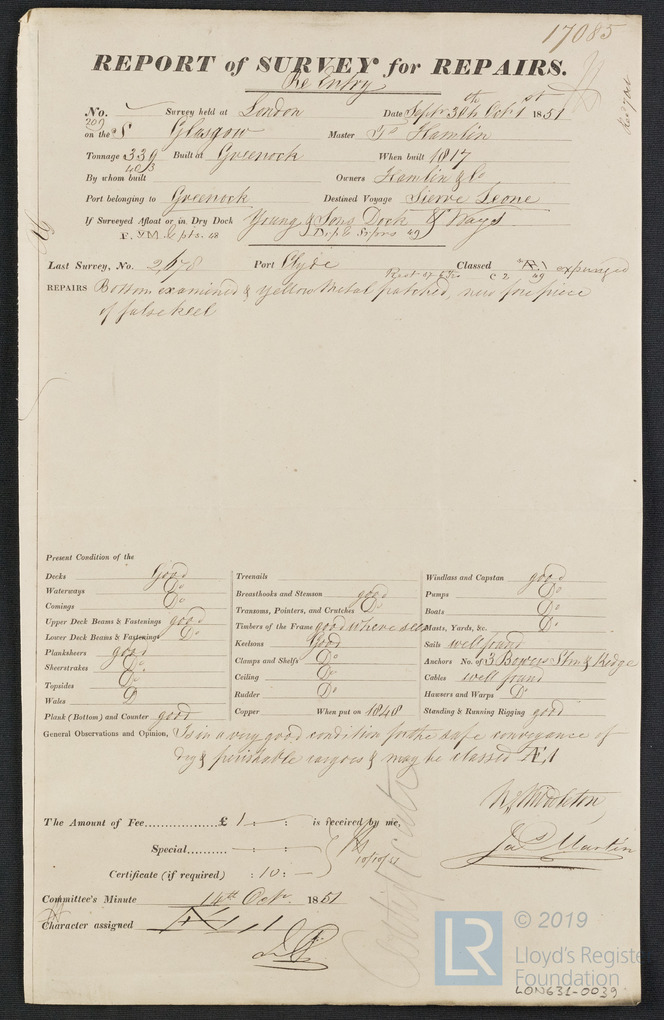 17085
REPORT of SURVEY for REPAIRS.
Re Entry
No. Survey held at London Date Septr 30th Octr 1st 1851
209
on the S Glasgow Master Jas Hamlin
Tonnage 339 Built at Greenock When built 1817
403
By whom built Owners Hamlin & Co
Port belonging to Greenock Destined Voyage Sierre Leone
If Surveyed Afloat or in Dry Dock Young & Sons Dock & Ways
F. YM. Septs. 48
Last Survey, No. Port Clyde Classed expunged
REPAIRS Bottom examined & yellow Metal patched, new fore piece
of false keel
Present Condition of the
Decks Good
Waterways Do
Comings Do
Upper Deck Beams & Fastenings good
Lower Deck Beams & Fastenings Do
Planksheers good
Sheerstrakes Do
Topsides Do
Wales D
Plank (Bottom) and Counter good
Treenails
Breasthooks and Stemson good
Transoms, Pointers, and Crutches Do
Timbers of the Frame good where seen
Keelsons Good
Clamps and Shelfs Do
Ceiling Do
Rudder Do
Copper When put on 1848
Windlass and Capstan good
Pumps Do
Boats Do
Masts, Yards, &c. Do
Sails well found
Anchors No. of 3 Bowers Stm & Kedge
Cables well found
Hawsers and Warps Do
Standing & Running Rigging good
General Observations and Opinion, Is in a very good condition for the safe conveyance of
dry & perishable cargoes & may be classed Æ1
W Middleton
Jas Martin
The Amount of Fee £ 1 : : is received by me,
Special : :
10/10/51
Certificate (if required) : 10 : —
Certificate
Committee's Minute 14th Octr. 1851
Character assigned Æ 1
© 2019
LR
Lloyd's Register
Foundation
LON631-0039